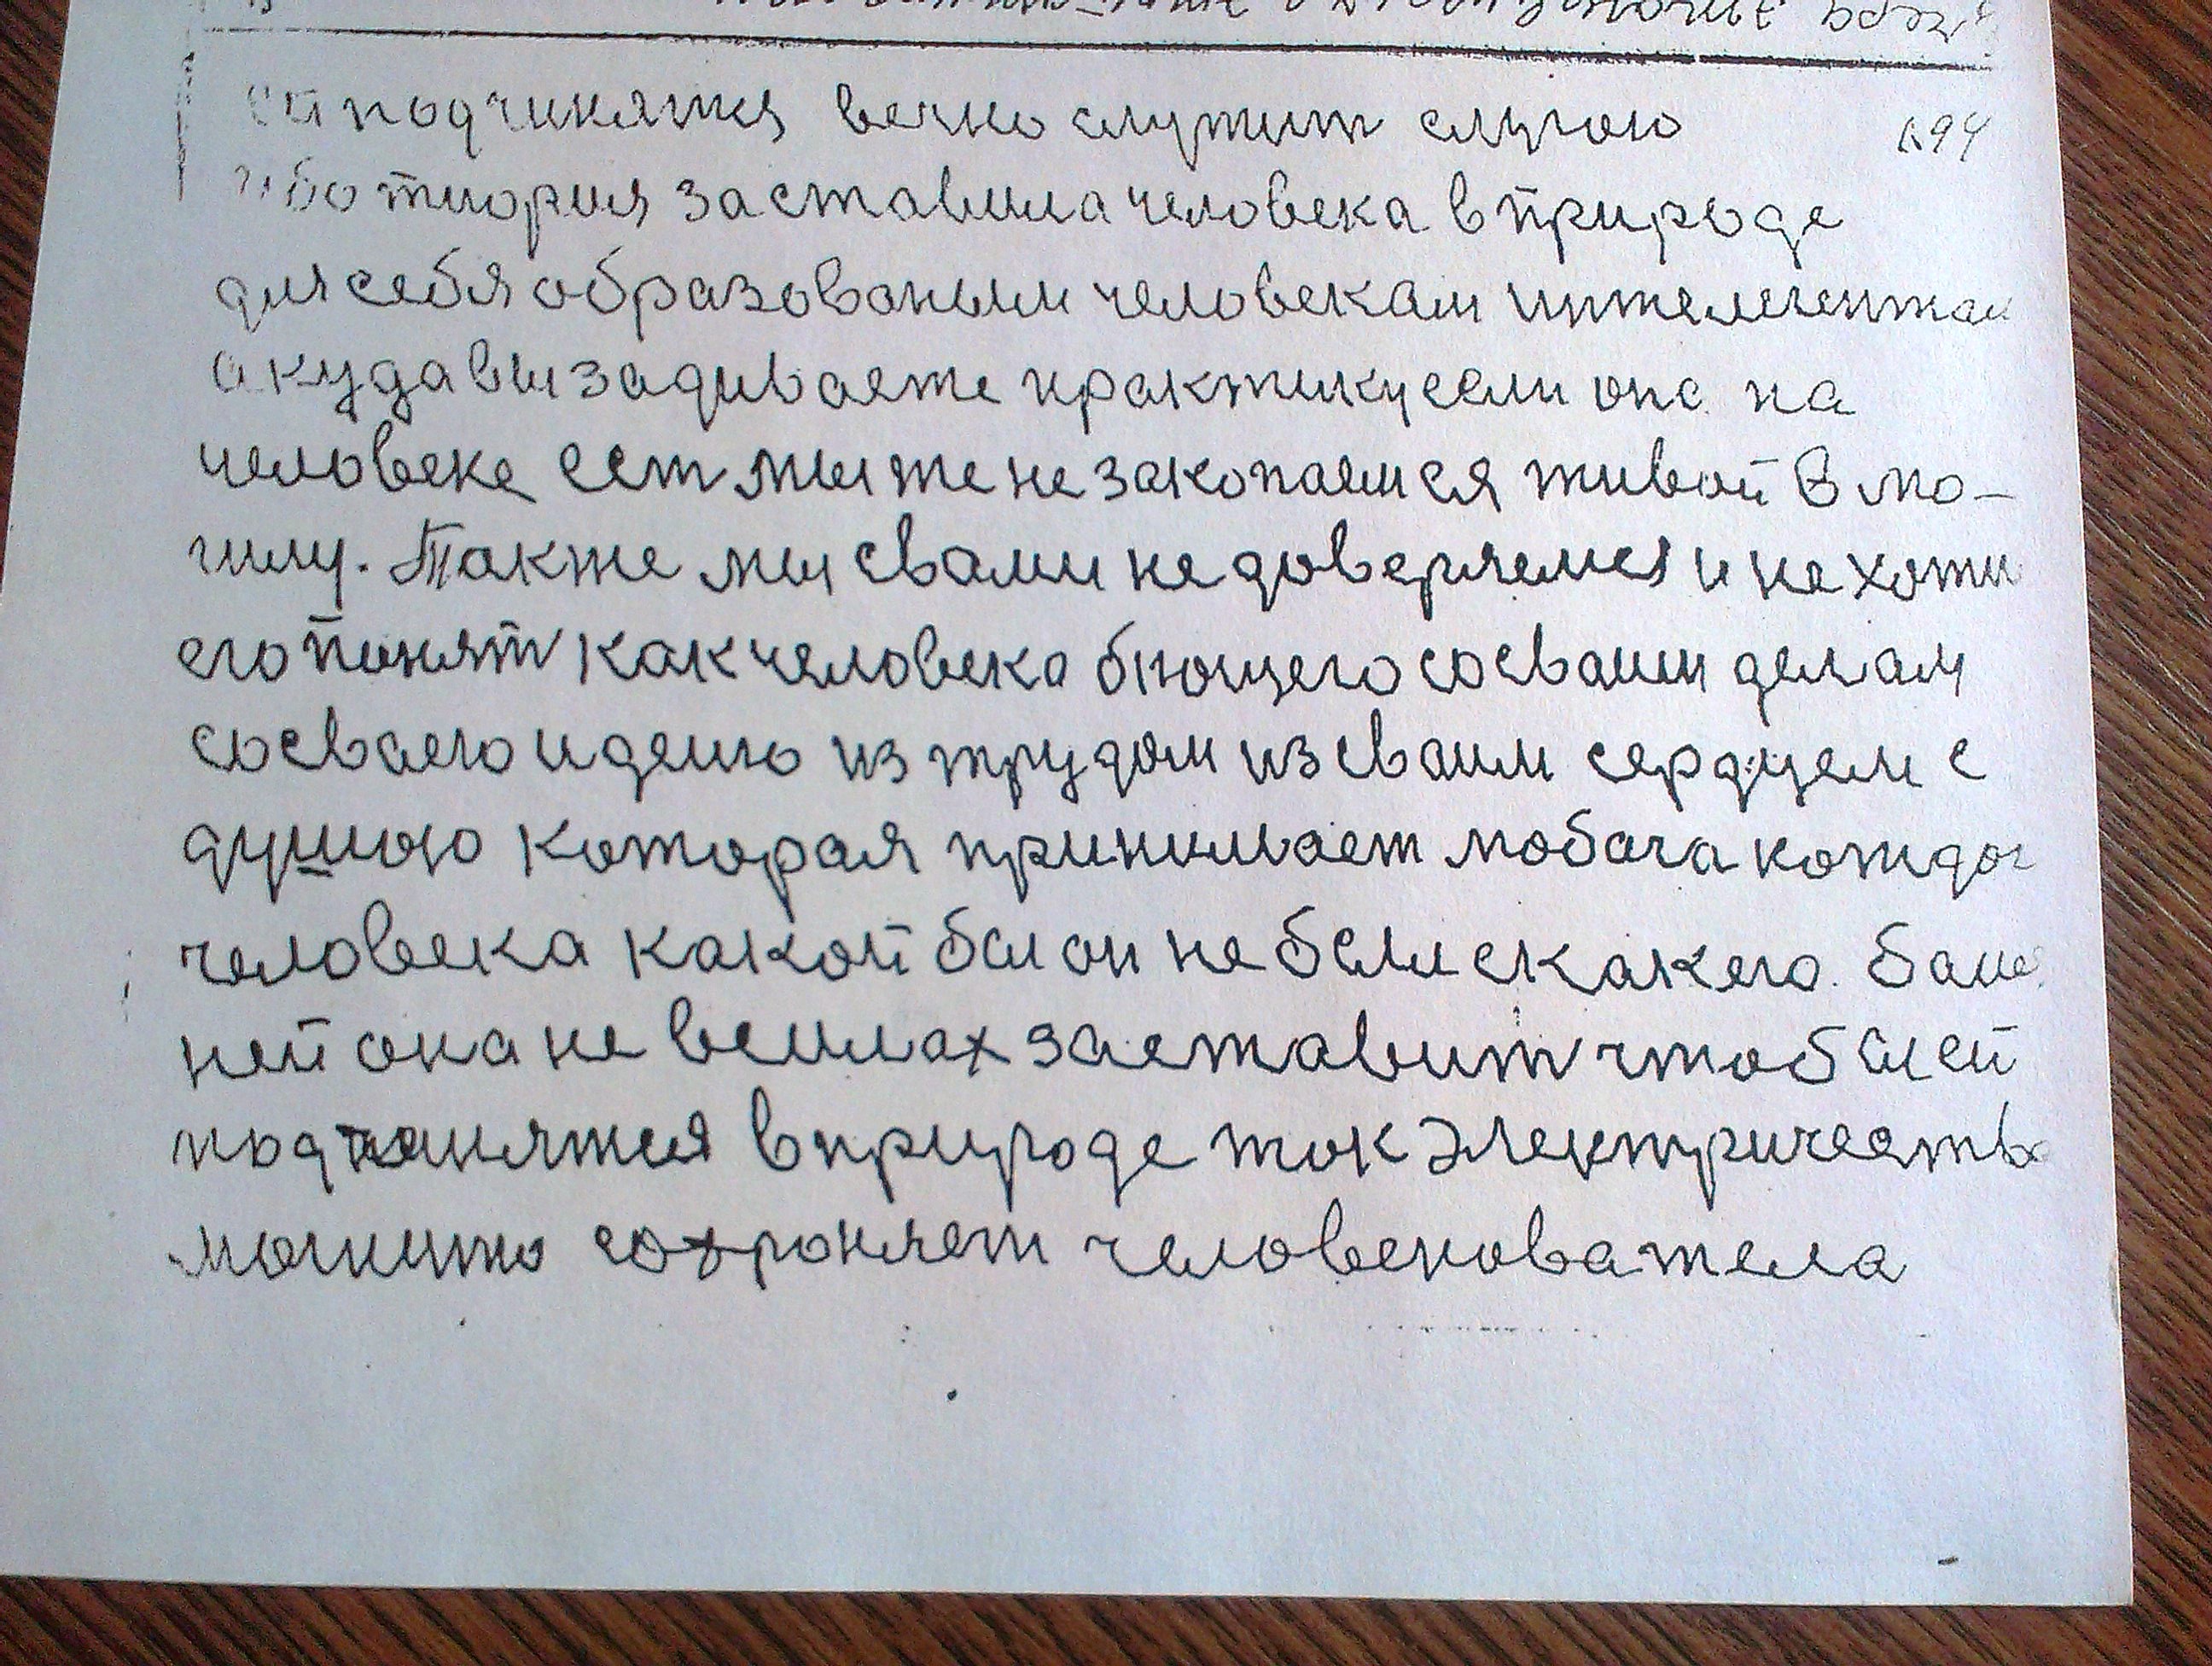 ей подчинятся вечно служит слугою
694
ибо тиория заставила человека в природе
для себя образованым человекам интелегентам
а куда вы задиваете практику если она на
человеке ест мы же не закопаемся живой в мо-
гилу. Также мы свами не доверяемся и не хоти
его понят как человека бющего сосваим делам
сосваего идею из трудом из сваим сердцем с
душою которая принимает любога каждог
человека какой бы он не был скакего. баш
ней она не всилах заставит чтобы ей
подчинятся в природе ток электричества
могнито сохроняет человекова тела